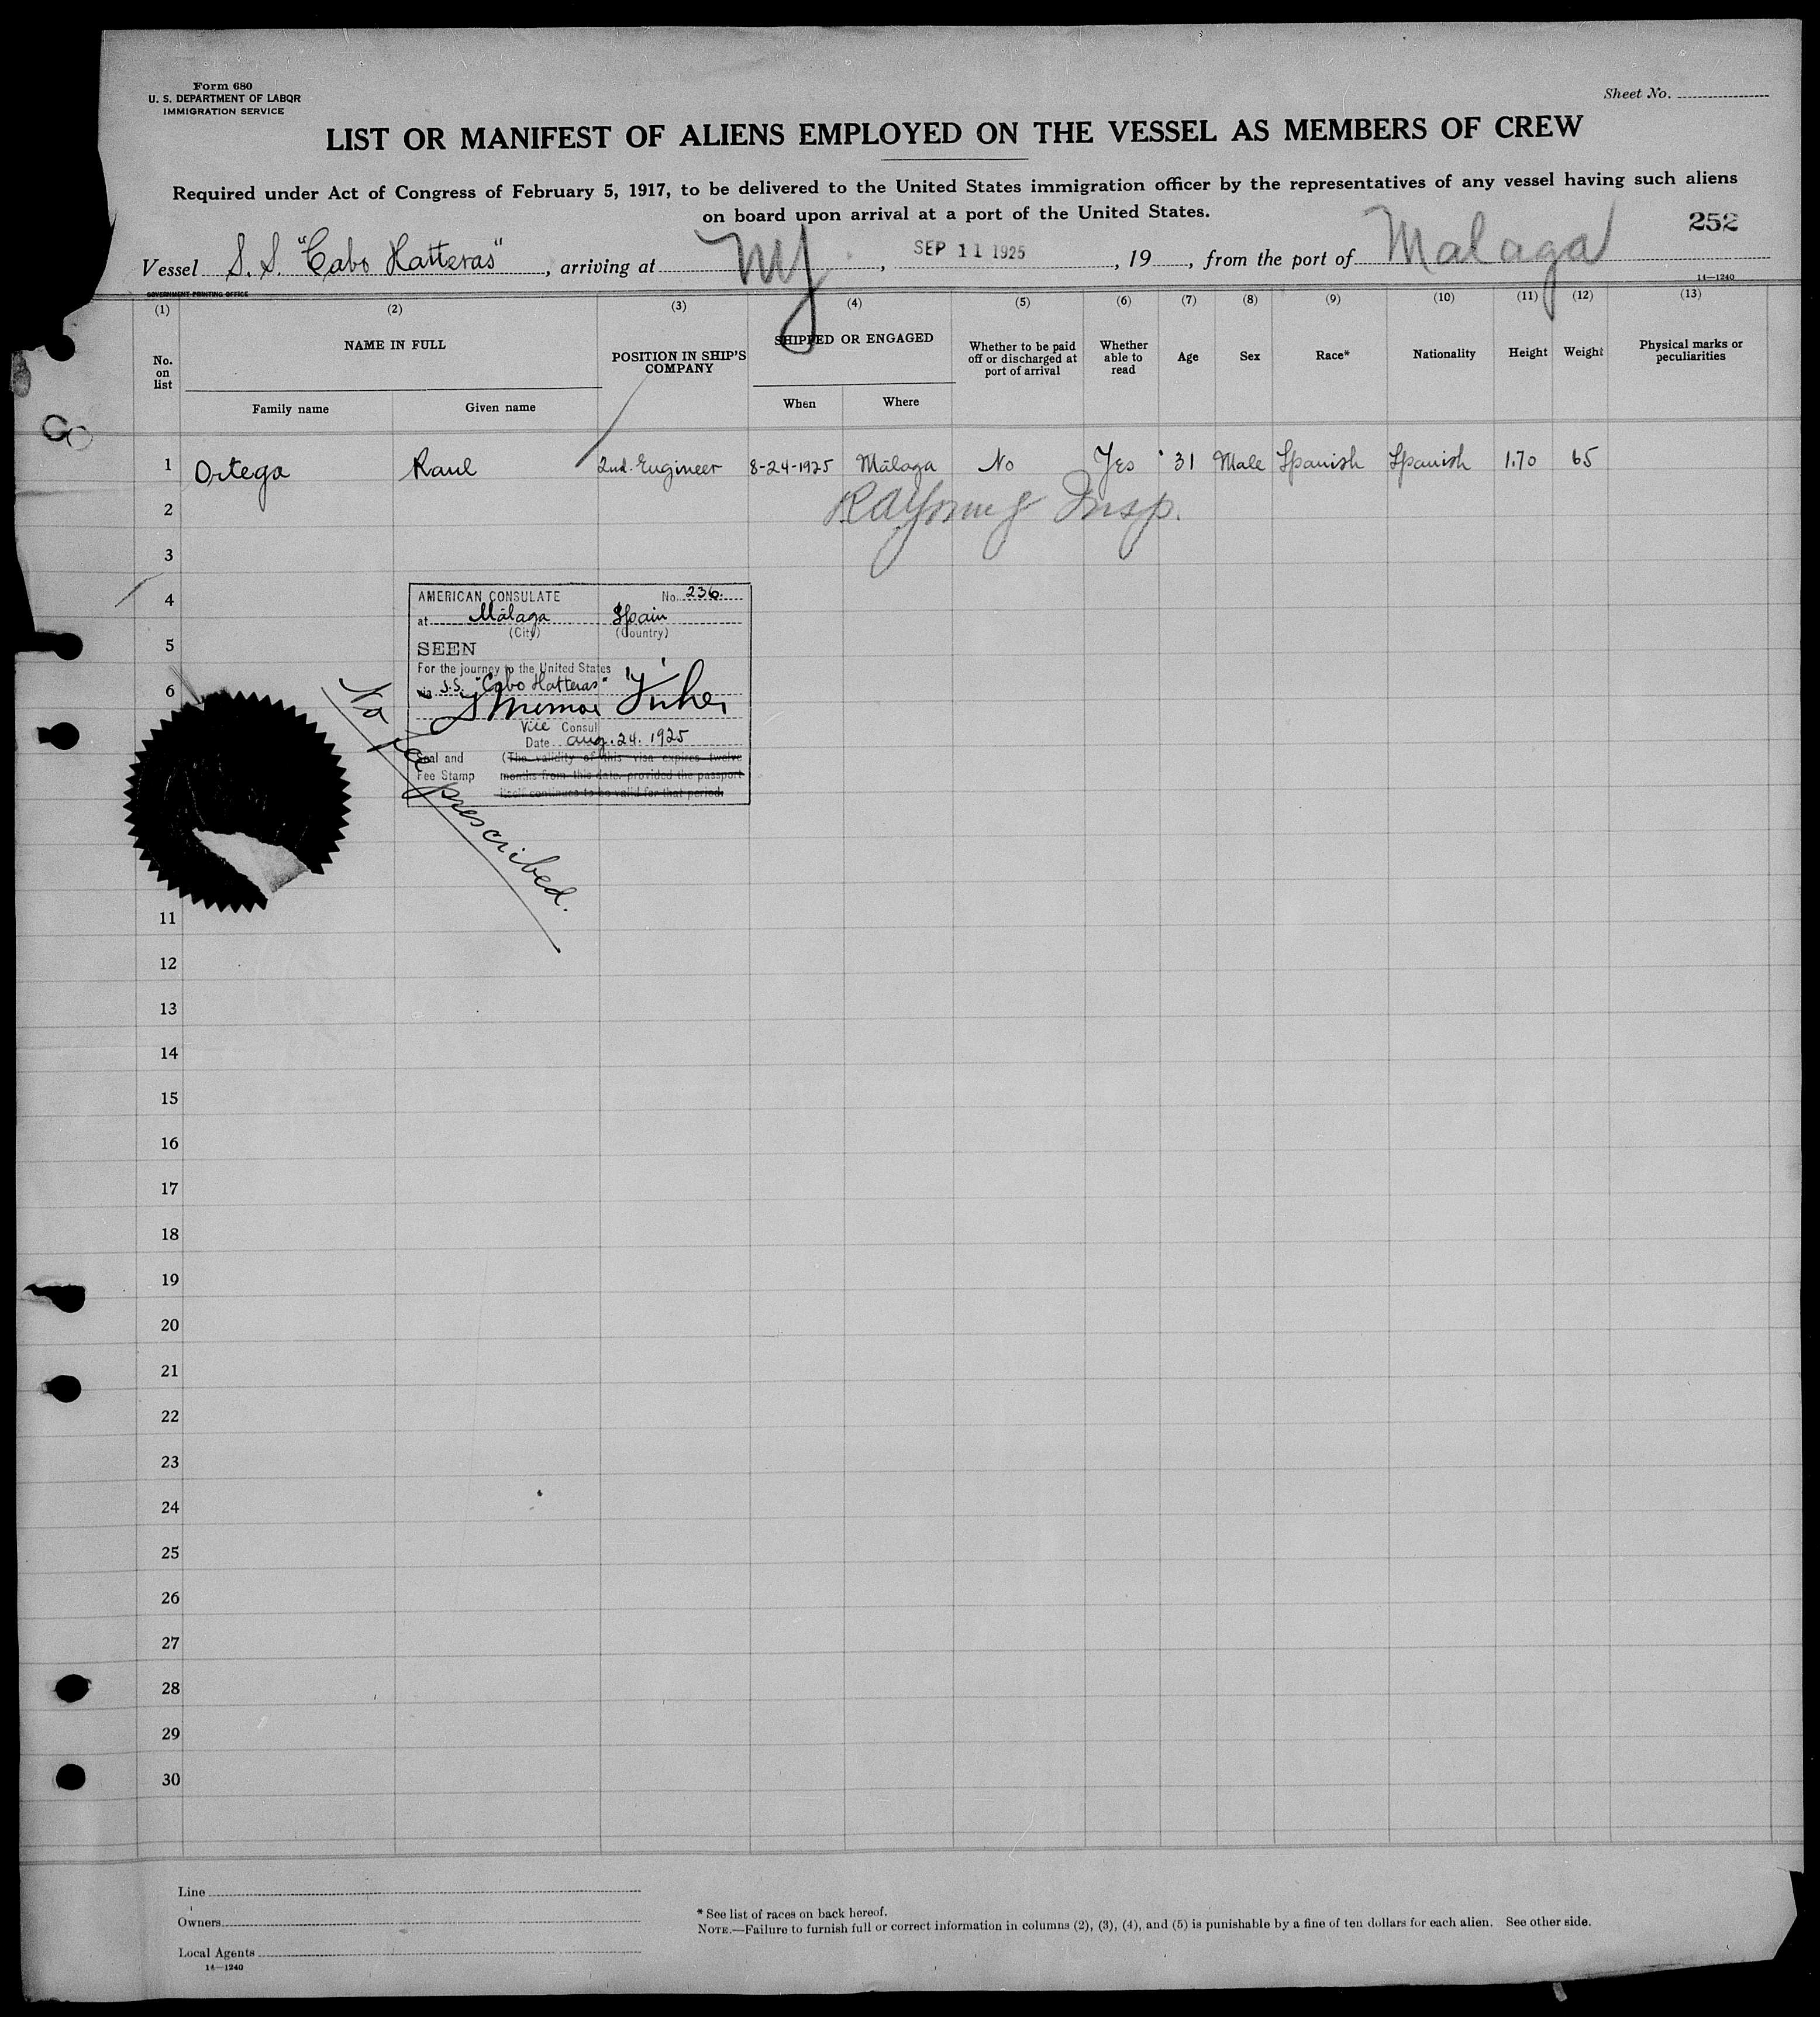 Form 680
U. S. DEPARTMENT OF LABOR
IMMIGRATION SERVICE
Sheet No.
LIST OR MANIFEST OF ALIENS EMPLOYED ON THE VESSEL AS MEMBERS OF CREW
Required under Act of Congress of February 5, 1917, to be delivered to the United States immigration officer by the representatives of any vessel having such aliens
on board upon arrival at a port of the United States.
252
Vessel S. S. "Cabo Hatteras", arriving at NY, SEP 11 1925, 19, from the port of Malaga
14—1240
GOVERNMENT PRINTING OFFICE
(1) (2) (3) (4) (5) (6) (7) (8) (9) (10) (11) (12) (13)
No. on list NAME IN FULL POSITION IN SHIP'S COMPANY SHIPPED OR ENGAGED Whether to be paid off or discharged at port of arrival Whether able to read Age Sex Race* Nationality Height Weight Physical marks or peculiarities
Family name Given name When Where
1 Ortega Raul 2nd. Engineer 8-24-1925 Málaga No Yes 31 Male Spanish Spanish 1.70 65
2 Insp.
3
4
5
6
AMERICAN CONSULATE No. 236.
at Málaga Spain
(City) (Country)
SEEN
For the journey to the United States
via S.S. "Cabo Hatteras"
Vice Consul
Date Aug. 24. 1925
Seal and (The validity of this visa expires twelve
Fee Stamp months from this date, provided the passport
itself continues to be valid for that period.
No fee prescribed.
11
12
13
14
15
16
17
18
19
20
21
22
23
24
25
26
27
28
29
30
Line
Owners
Local Agents
14—1240
* See list of races on back hereof.
NOTE.—Failure to furnish full or correct information in columns (2), (3), (4), and (5) is punishable by a fine of ten dollars for each alien. See other side.